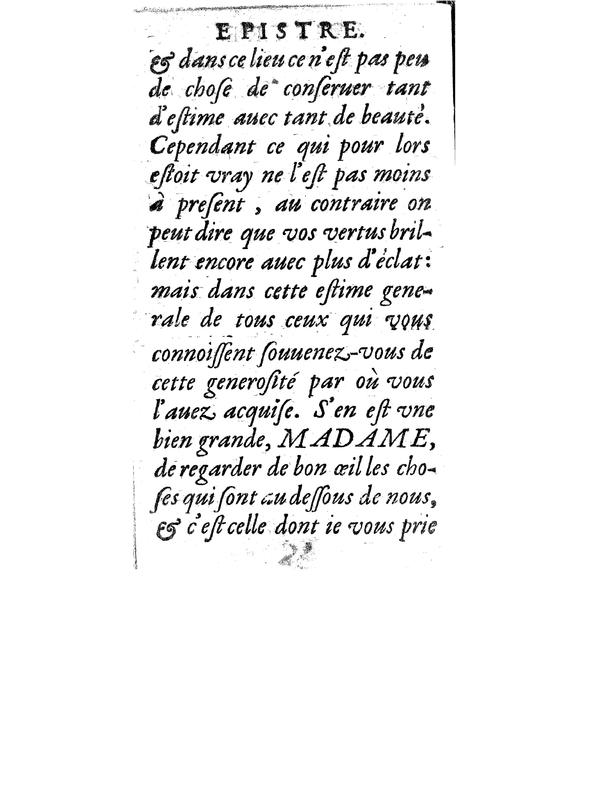 EPISTRE.
& dans ce lieu ce n'eſt pas peu
de choſe de conſeruer tant
d'eſtime auec tant de beauté.
Cependant ce qui pour lors
eſtoit vray ne l'eſt pas moins
à preſent , au contraire on
peut dire que vos vertus bril-
lent encore auec plus d'éclat:
mais dans cette eſtime gene-
rale de tous ceux qui vous
connoiſſent ſouuenez-vous de
cette generoſité par où vous
l'auez acquiſe. S'en eſt vne
bien grande, MADAME,
de regarder de bon œil les cho-
ſes qui ſont au deſſous de nous,
& c'eſt celle dont ie vous prie